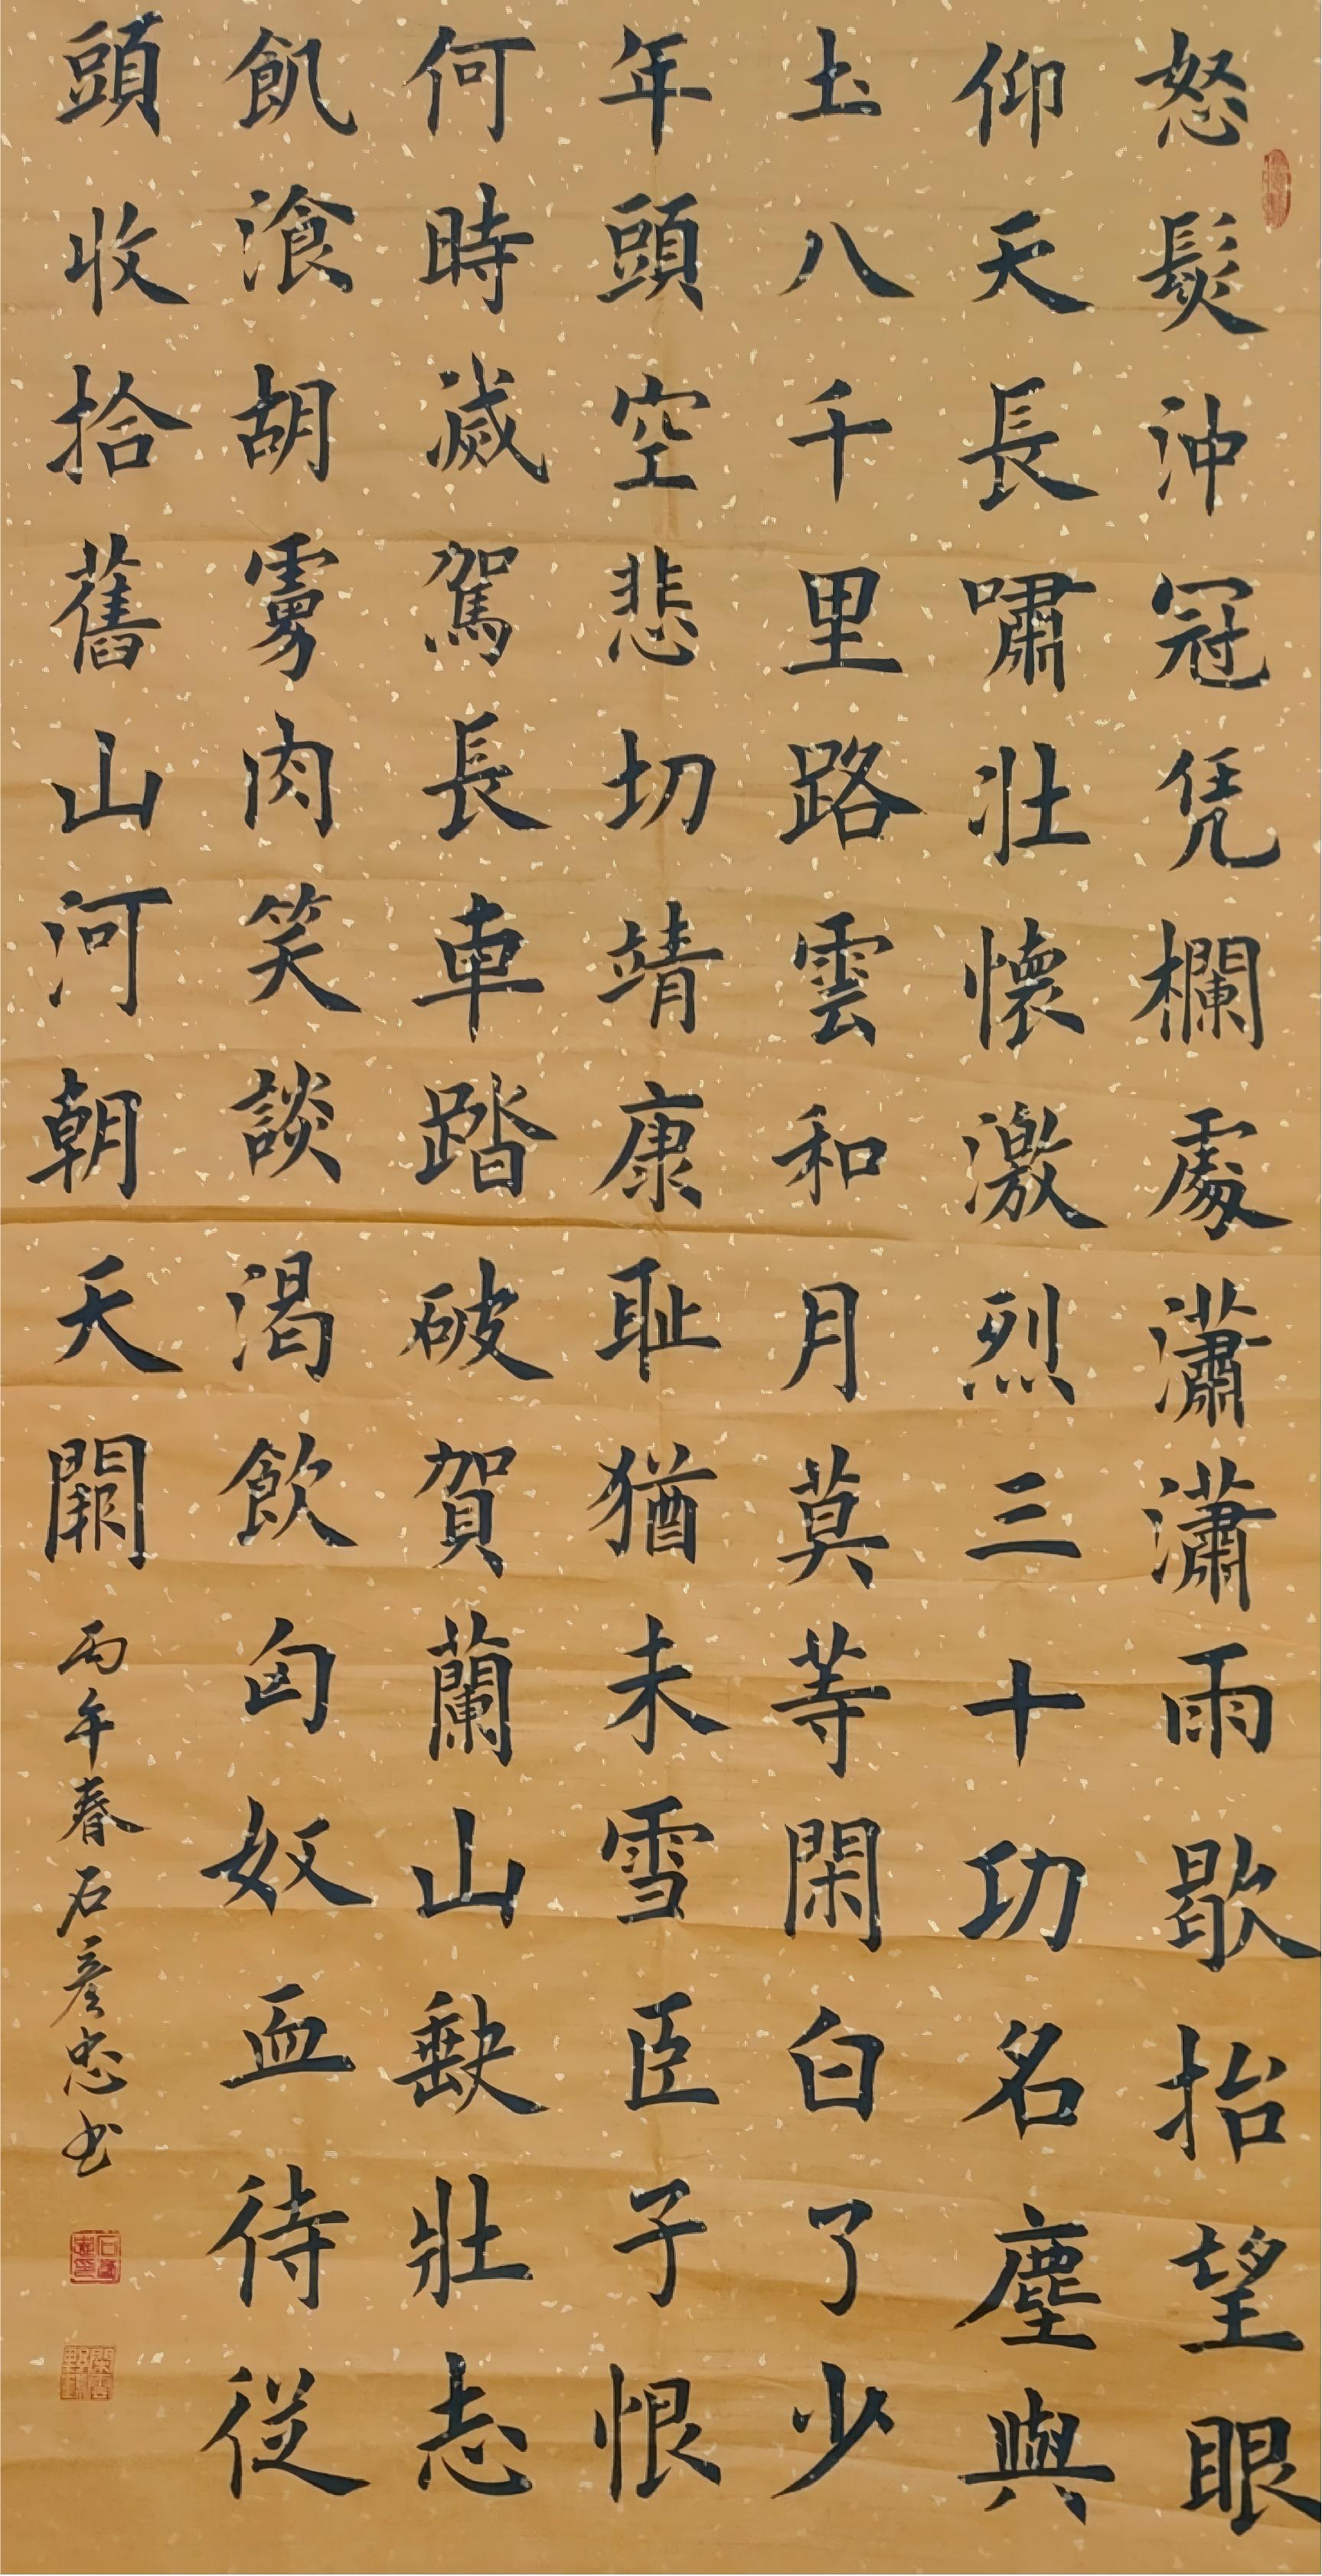 怒髮沖冠凭欄處瀟瀟雨歇抬望眼
仰天長嘯壯懷激烈三十功名塵與
土八千里路雲和月莫等閑白了少
年頭空悲切靖康耻猶未雪臣子恨
何時滅駕長車踏破賀蘭山缺壯志
飢湌胡虜肉笑談渴飲匈奴血待従
頭收拾舊山河朝天闕
丙午春石彥忠书